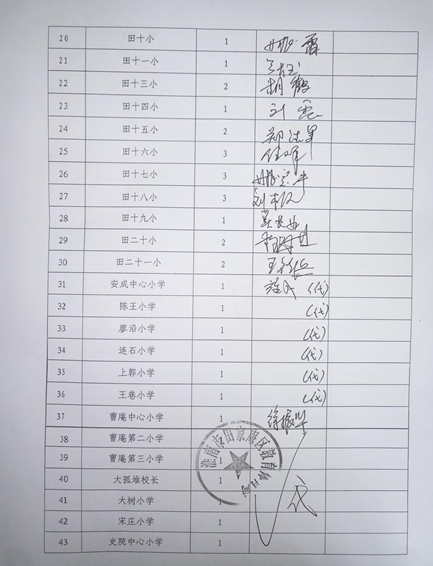 20 田十小 1
21 田十一小 1
22 田十三小 2
23 田十四小 1 刘
24 田十五小 2 郑
25 田十六小 3
26 田十七小 3
27 田十八小 3 刘
28 田十九小 1
29 田二十小 2
30 田二十一小 2 王
31 安成中心小学 1 (代)
32 陈王小学 1 (代)
33 廖沿小学 1 (代)
34 连石小学 1 (代)
35 上郢小学 1 (代)
36 王巷小学 1 (代)
37 曹庵中心小学 1 徐
38 曹庵第二小学 1
39 曹庵第三小学 1
淮南市田家庵区教育体育局
40 大孤堆校长 1
41 大树小学 1 代
42 宋庄小学 1
43 史院中心小学 1